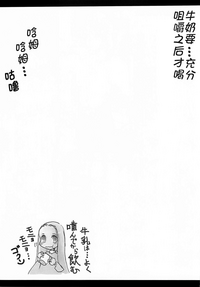 牛奶要…充分
咀嚼之后才喝
哈姆…
哈姆…
咕噜
牛乳は…よく
噛んでから飲む
モニョ
モニョ
ゴクン